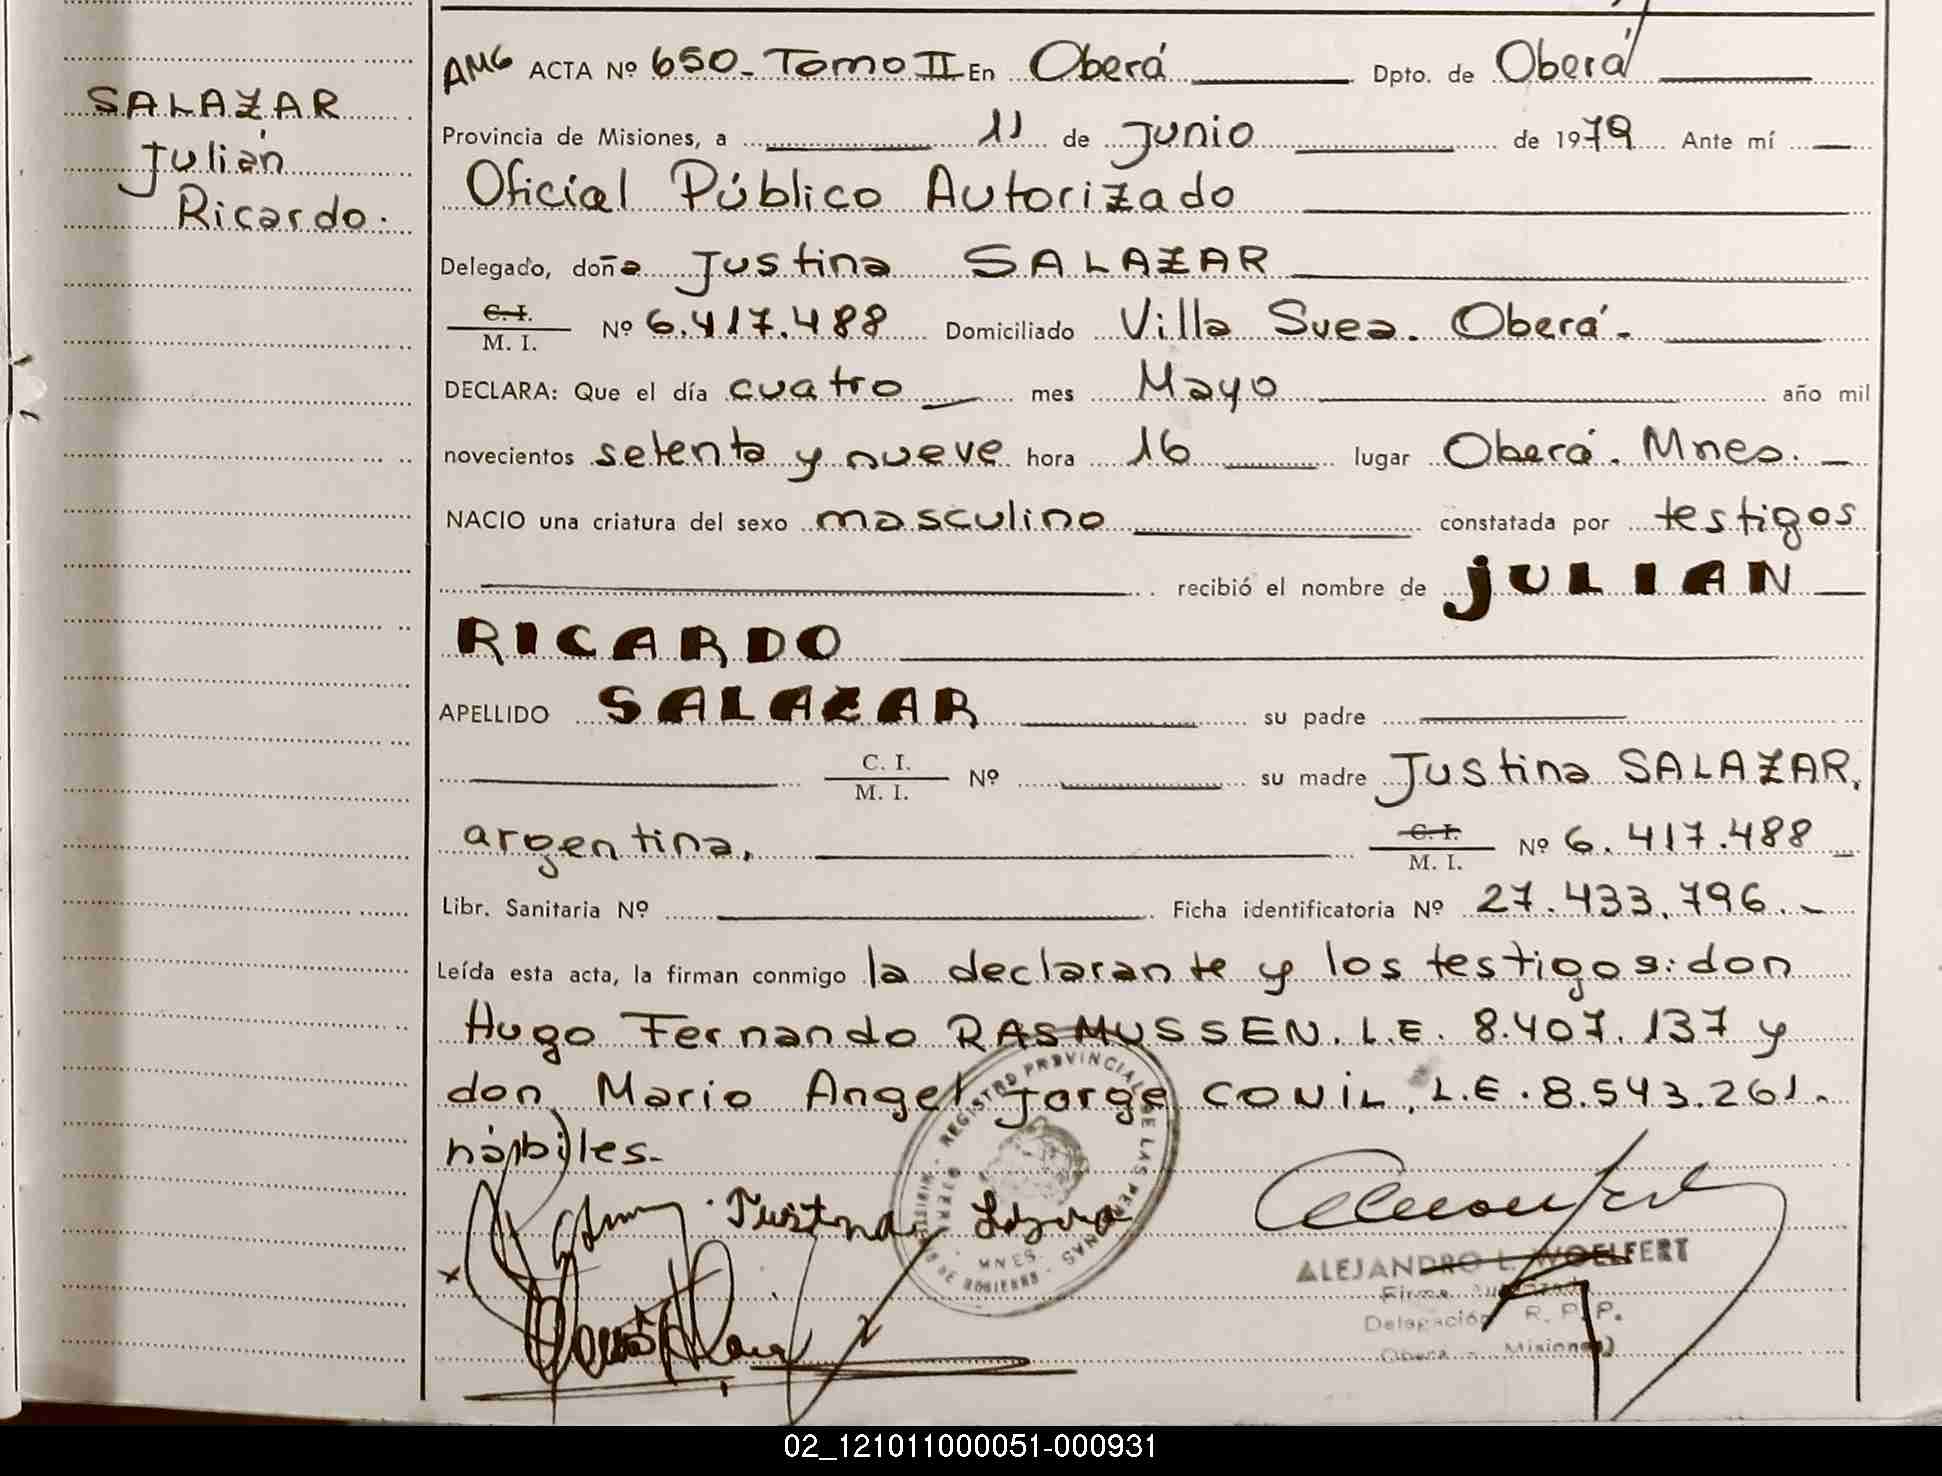 SALAZAR
Julián
Ricardo.
AMG ACTA Nº 650_ Tomo II En Oberá Dpto. de Oberá
Provincia de Misiones, a 11 de Junio de 1979 Ante mí
Oficial Público Autorizado
Delegado, doña Justina SALAZAR
C. I. / M. I. Nº 6.417.488 Domiciliado Villa Svea. Oberá.-
DECLARA: Que el día cuatro mes Mayo año mil
novecientos setenta y nueve hora 16 lugar Oberá. Mnes.
NACIO una criatura del sexo masculino constatada por testigos
recibió el nombre de JULIAN
RICARDO
APELLIDO SALAZAR su padre
C. I. / M. I. Nº su madre Justina SALAZAR,
argentina, C. I. / M. I. Nº 6.417.488
Libr. Sanitaria Nº Ficha identificatoria Nº 27.433.796.-
Leída esta acta, la firman conmigo la declarante y los testigos: don
Hugo Fernando RASMUSSEN. L.E. 8.407.137 y
don Mario Angel Jorge COVIL, L.E. 8.543.261.
hábiles.-
REGISTRO PROVINCIAL DE LAS PERSONAS
MNES.
Justina
ALEJANDRO L. WOELFERT
Firma Autorizada
Delegación R. P. P.
Oberá - Misiones)
02_121011000051-000931